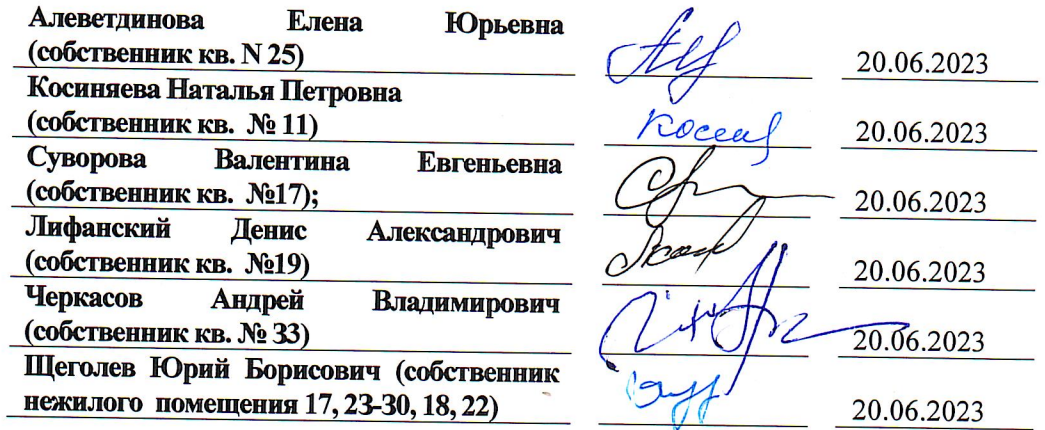 Алеветдинова Елена Юрьевна
(собственник кв. N 25) 20.06.2023
Косиняева Наталья Петровна
(собственник кв. № 11) 20.06.2023
Суворова Валентина Евгеньевна
(собственник кв. №17); 20.06.2023
Лифанский Денис Александрович
(собственник кв. №19) 20.06.2023
Черкасов Андрей Владимирович
(собственник кв. № 33) 20.06.2023
Щеголев Юрий Борисович (собственник
нежилого помещения 17, 23-30, 18, 22) 20.06.2023